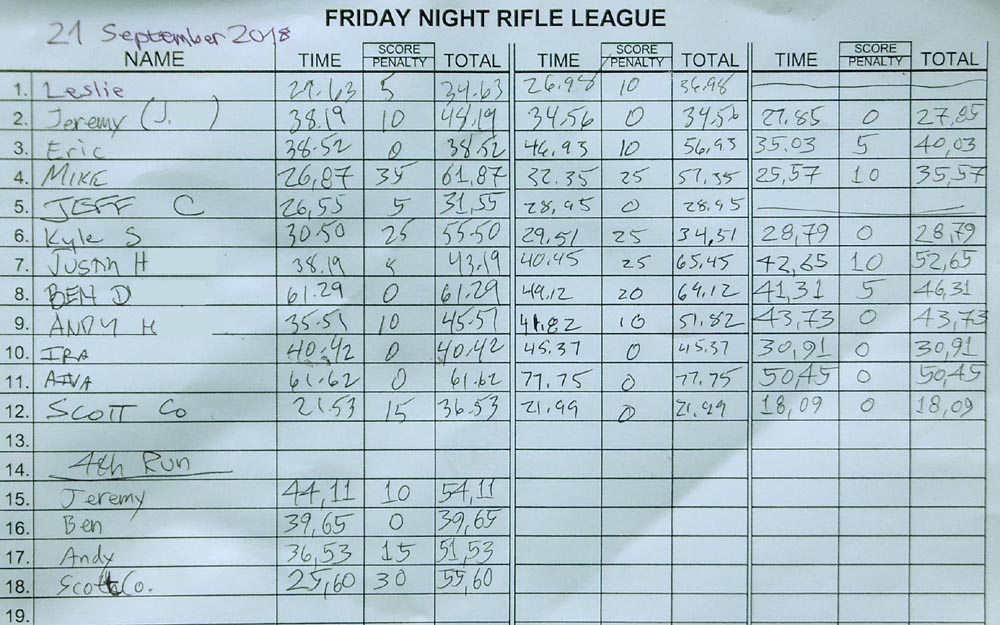 FRIDAY NIGHT RIFLE LEAGUE
21 September 2018
NAME TIME SCORE PENALTY TOTAL TIME SCORE PENALTY TOTAL TIME SCORE PENALTY TOTAL
1. Leslie 29.63 5 34.63 26.98 10 36.98
2. Jeremy (J. ) 38.19 10 48.19 34.56 0 34.56 27.85 0 27,85
3. Eric 38.52 0 38.52 46.93 10 56.93 35.03 5 40,03
4. MIKE 26,87 35 61,87 32.35 25 57.35 25,57 10 35,57
5. JEFF C 26,55 5 31,55 28,95 0 28.95
6. Kyle S 30.50 25 55.50 29.51 25 34,51 28,79 0 28,79
7. Justin H 38.19 5 43.19 40.45 25 65.45 42,65 10 52,65
8. BEN D 61.29 0 61.29 49.12 20 69.12 41,31 5 46,31
9. ANDY H 35.51 10 45.51 41.82 10 51.82 43,73 0 43,73
10. IRA 40.42 0 40.42 45.37 0 45.37 30,91 0 30,91
11. 61.62 0 61.62 77.75 0 77.75 50,45 0 50,45
12. SCOTT Co 21.53 15 36.53 21.99 0 21.99 18,09 0 18,09
13.
14. 4th Run
15. Jeremy 44,11 10 54,11
16. Ben 39,65 0 39,65
17. Andy 36,53 15 51,53
18. Scott Co. 25,60 30 55,60
19.